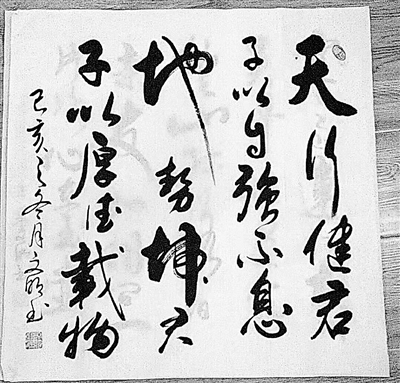 天行健君
子以自強不息
地勢坤君
子以厚德載物
己亥之冬月文明書